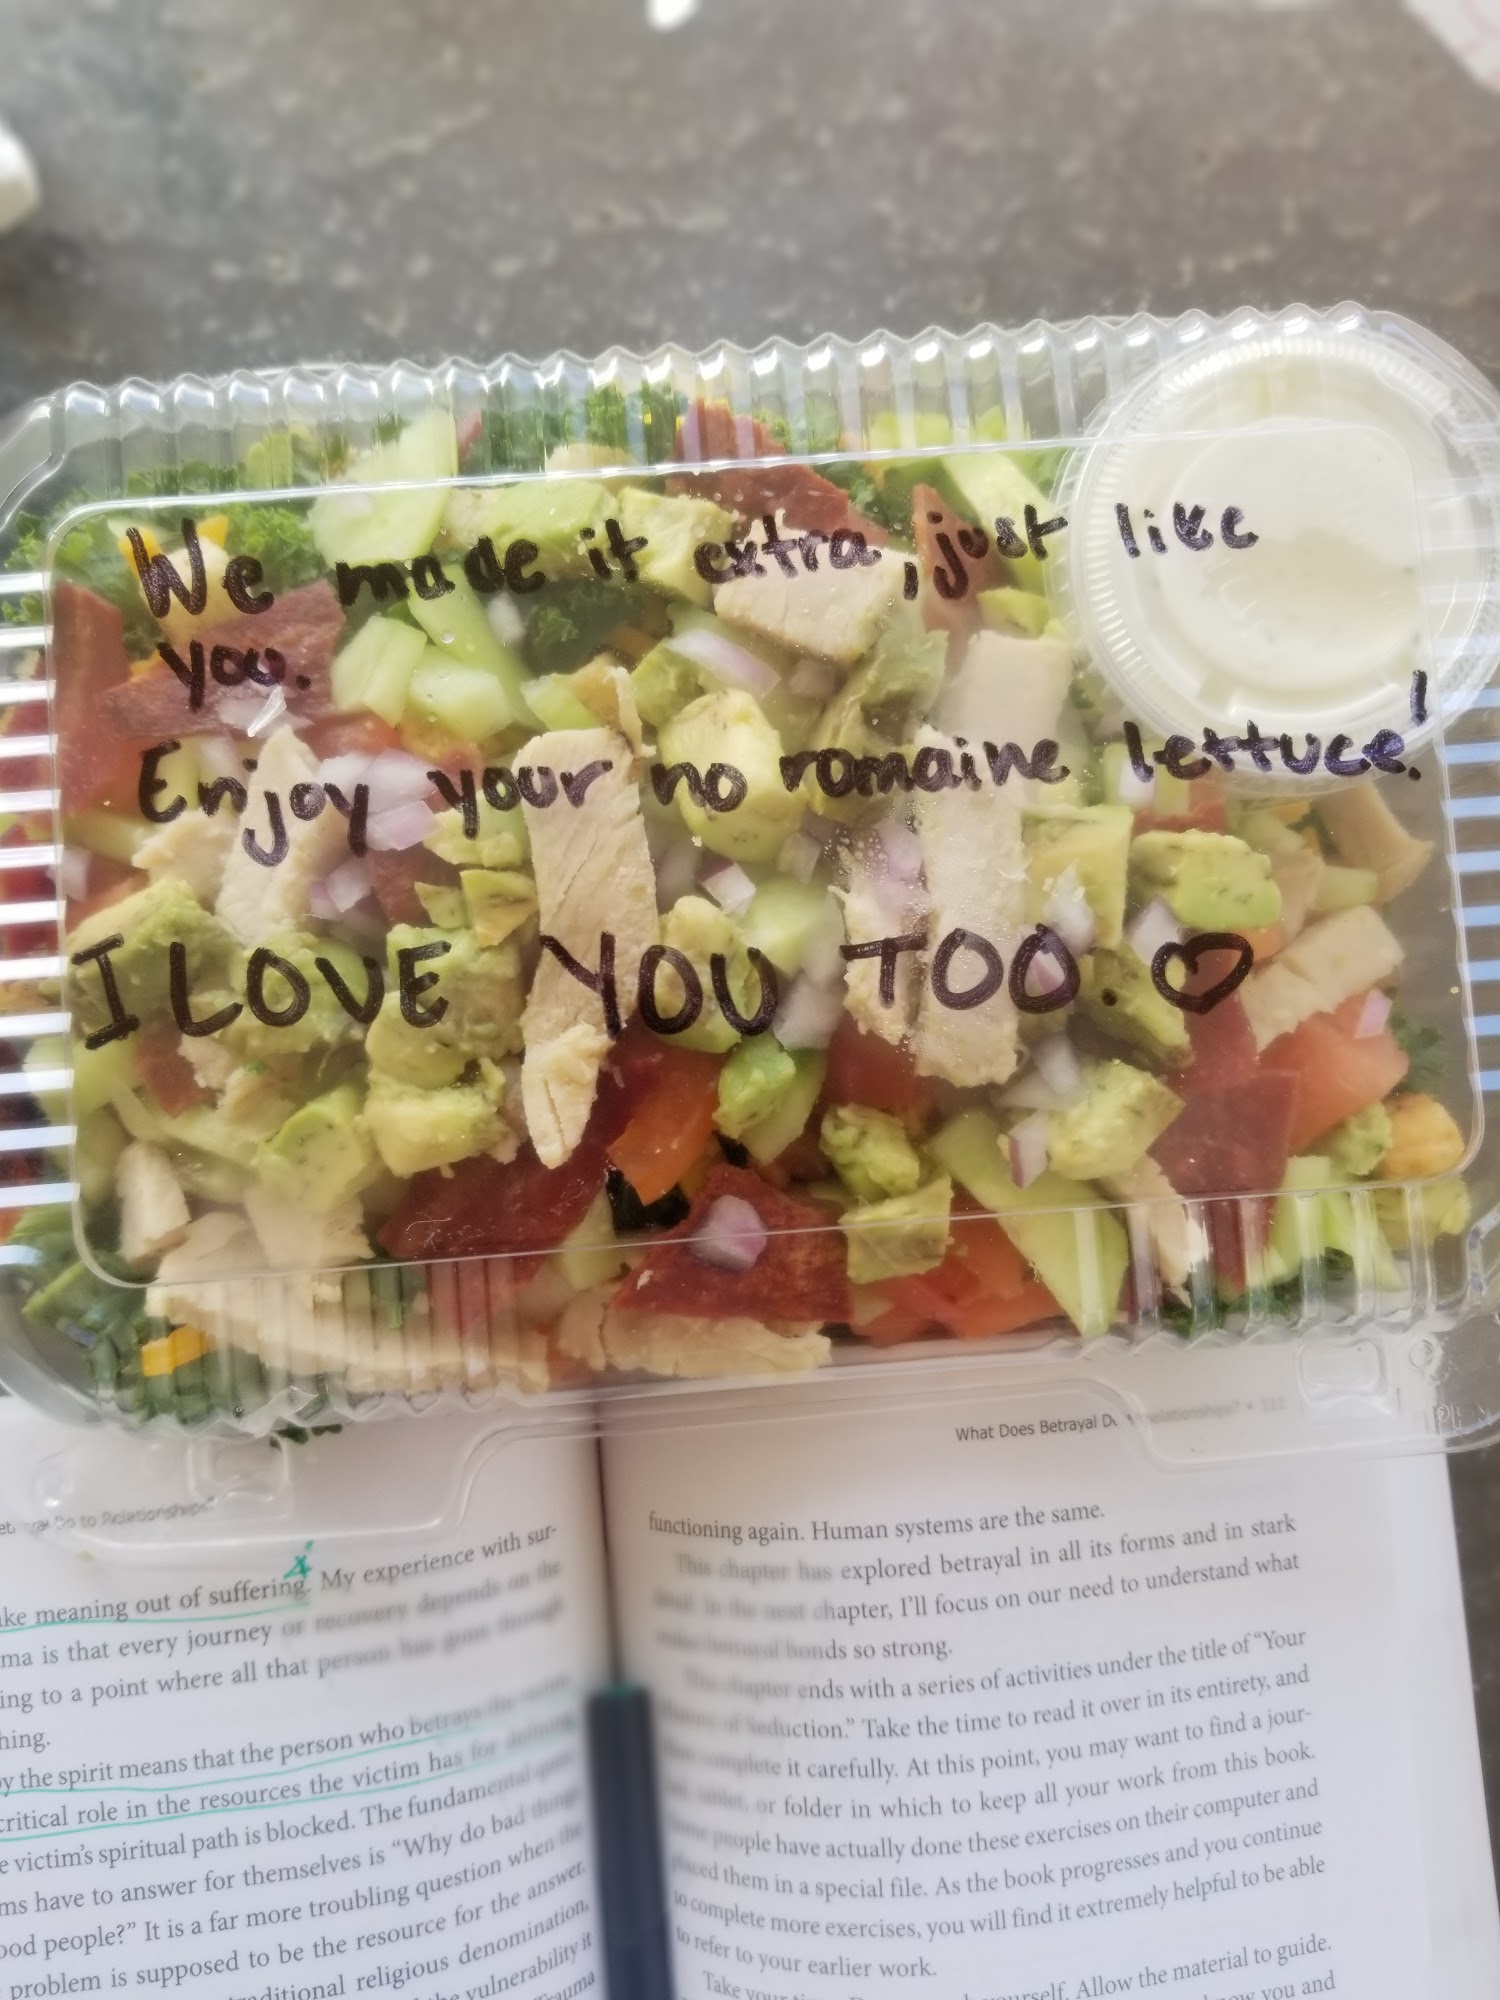 We made it extra, just like
you.
Enjoy your no romaine lettuce!
I LOVE YOU TOO. ♡
Do to Relationships?
ke meaning out of suffering. My experience with sur-
ma is that every journey or recovery depends on the
ing to a point where all that person has gone through
hing.
y the spirit means that the person who betrays the victim
critical role in the resources the victim has for defining
e victim's spiritual path is blocked. The fundamental
ms have to answer for themselves is “Why do bad things
ood people?” It is a far more troubling question when the
problem is supposed to be the resource for the answer.
aditional religious denomination,
the vulnerability it
Trauma
What Does Betrayal Do Relationships? • 111
functioning again. Human systems are the same.
This chapter has explored betrayal in all its forms and in stark
detail. In the next chapter, I'll focus on our need to understand what
makes betrayal bonds so strong.
This chapter ends with a series of activities under the title of “Your
of Seduction.” Take the time to read it over in its entirety, and
complete it carefully. At this point, you may want to find a jour-
tablet, or folder in which to keep all your work from this book.
Some people have actually done these exercises on their computer and
placed them in a special file. As the book progresses and you continue
to complete more exercises, you will find it extremely helpful to be able
to refer to your earlier work.
Take your yourself. Allow the material to guide.
know you and